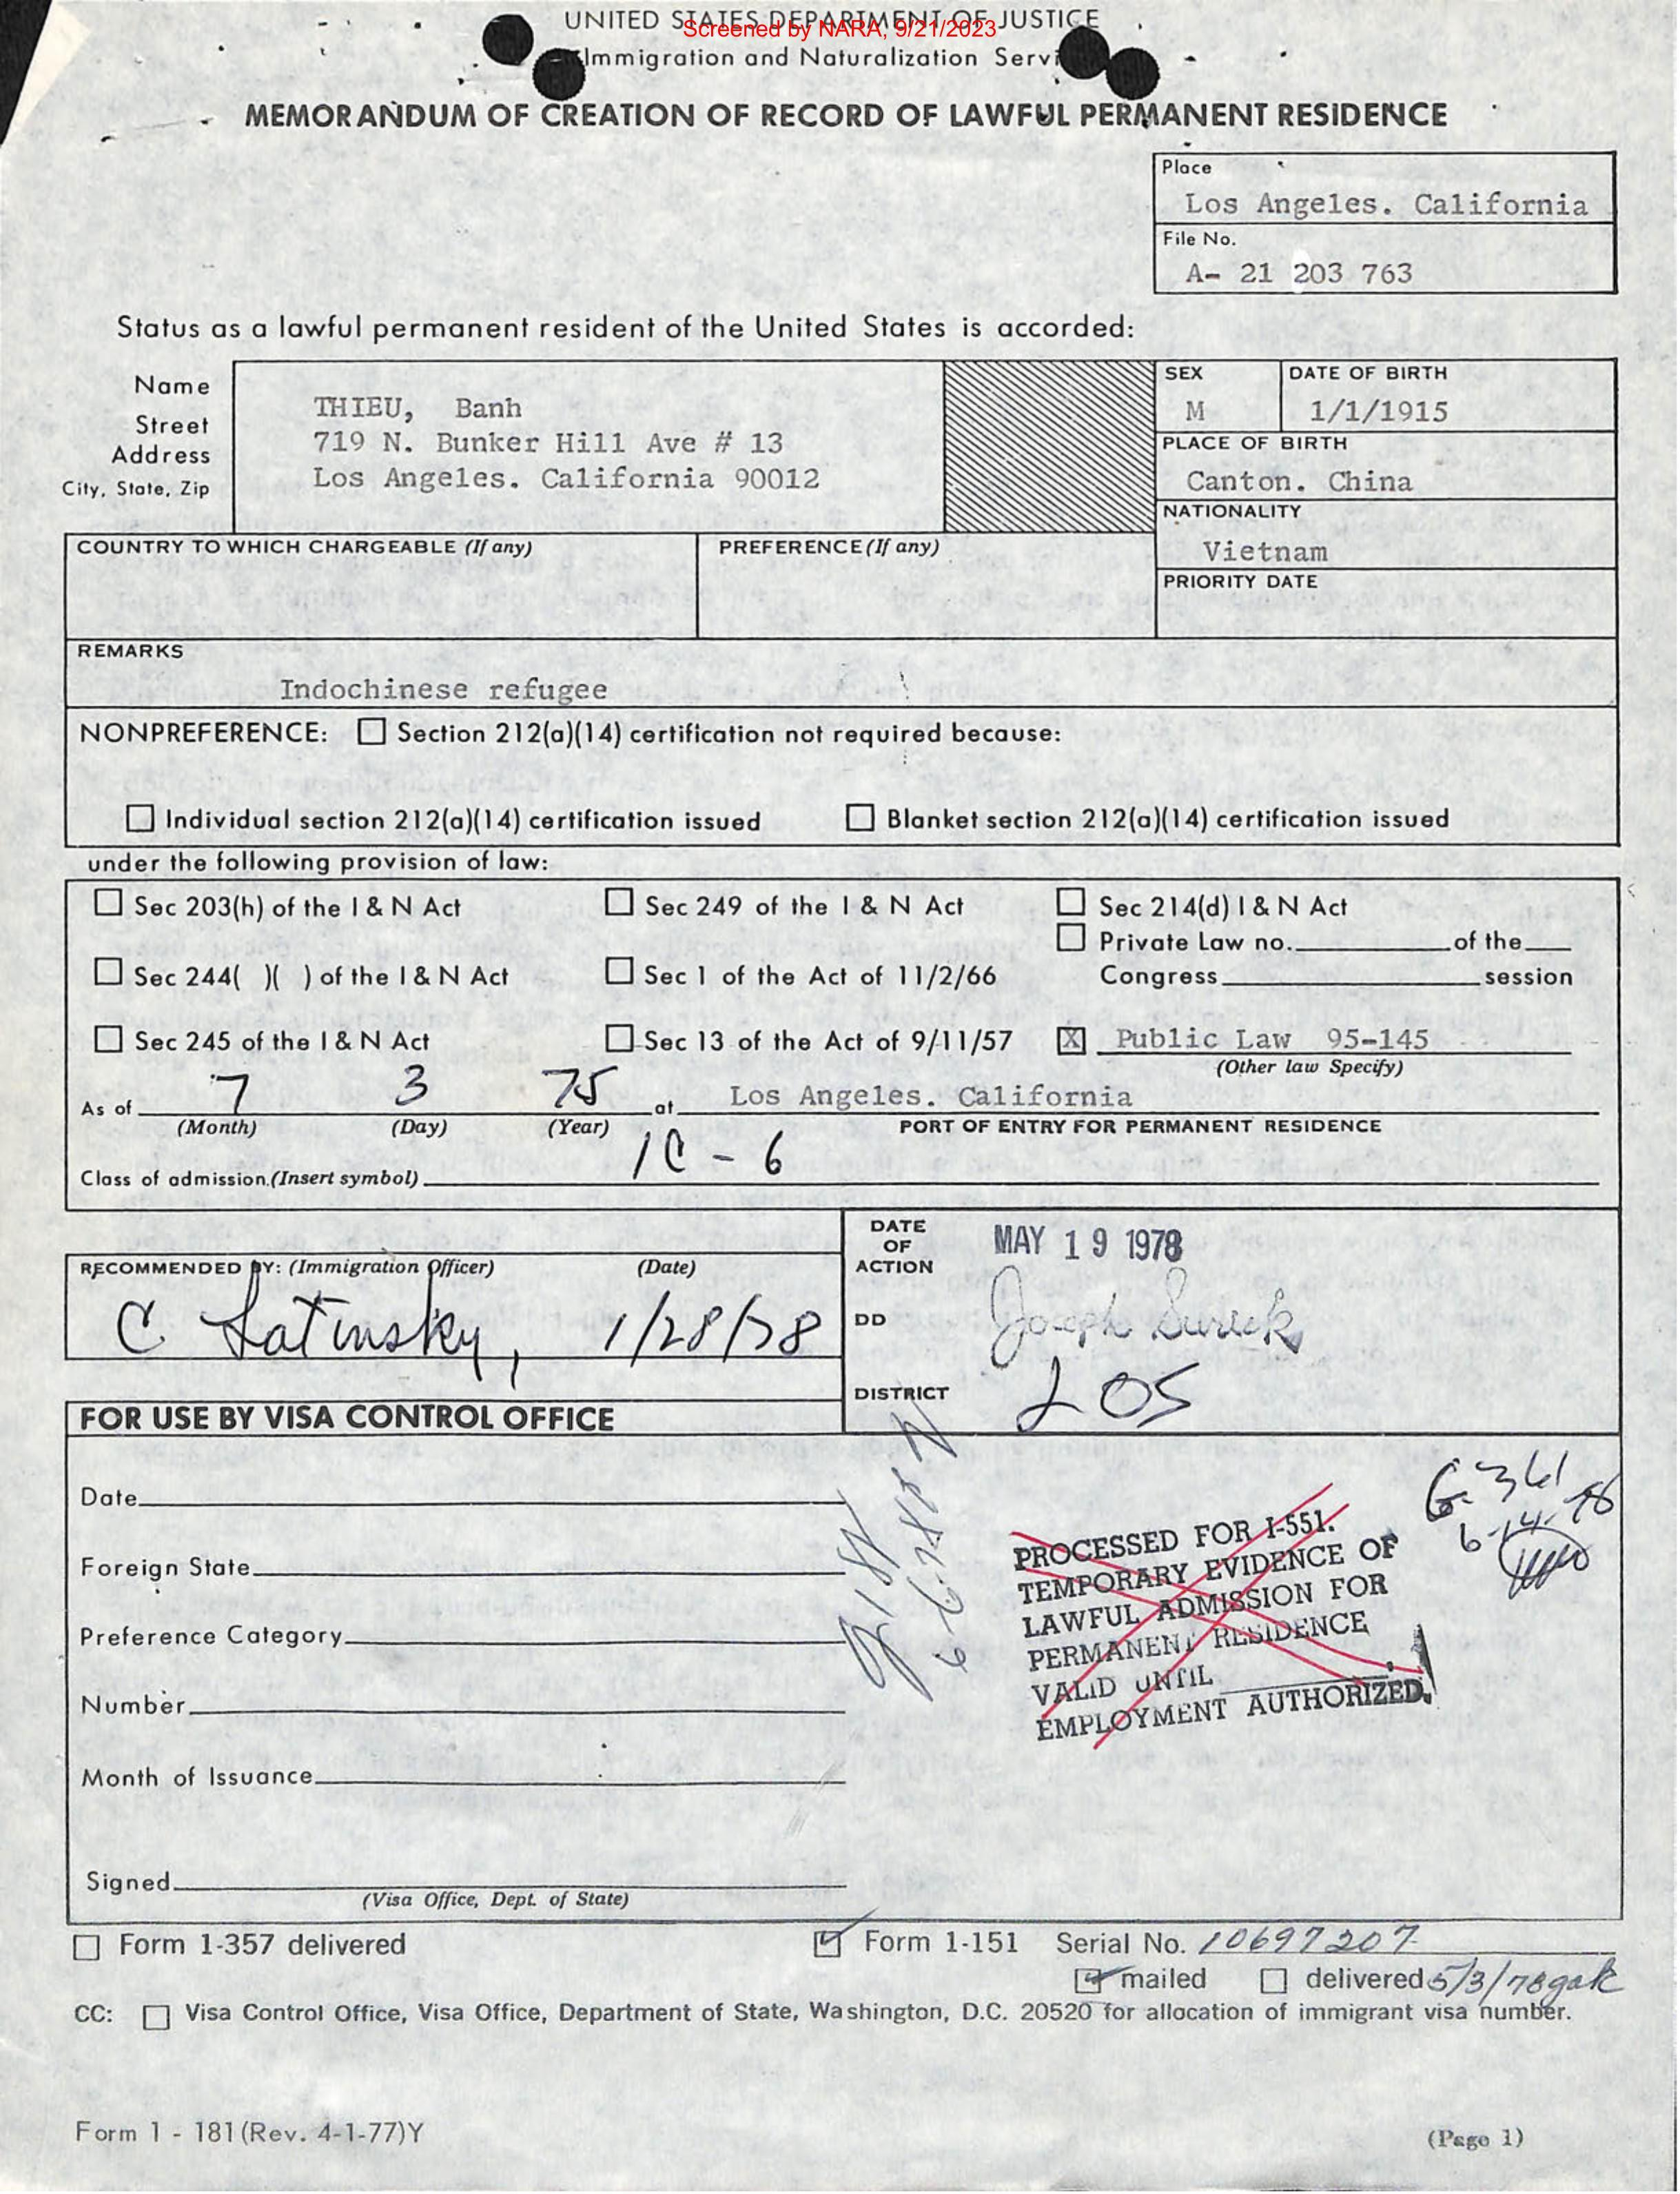 UNITED STATES DEPARTMENT OF JUSTICE
Screened by NARA, 9/21/2023
Immigration and Naturalization Servi
MEMORANDUM OF CREATION OF RECORD OF LAWFUL PERMANENT RESIDENCE
Place
Los Angeles. California
File No.
A- 21 203 763
Status as a lawful permanent resident of the United States is accorded:
Name
Street
Address
City, State, Zip
THIEU, Banh
719 N. Bunker Hill Ave # 13
Los Angeles. California 90012
SEX
M
DATE OF BIRTH
1/1/1915
PLACE OF BIRTH
Canton. China
NATIONALITY
Vietnam
COUNTRY TO WHICH CHARGEABLE (If any)
PREFERENCE (If any)
PRIORITY DATE
REMARKS
Indochinese refugee
NONPREFERENCE: ☐ Section 212(a)(14) certification not required because:
☐ Individual section 212(a)(14) certification issued ☐ Blanket section 212(a)(14) certification issued
under the following provision of law:
☐ Sec 203(h) of the I & N Act ☐ Sec 249 of the I & N Act ☐ Sec 214(d) I & N Act
☐ Private Law no. of the
☐ Sec 244( )( ) of the I & N Act ☐ Sec 1 of the Act of 11/2/66 Congress session
☐ Sec 245 of the I & N Act ☐ Sec 13 of the Act of 9/11/57 ☒ Public Law 95-145
(Other law Specify)
As of 7 3 75 at Los Angeles. California
(Month) (Day) (Year) PORT OF ENTRY FOR PERMANENT RESIDENCE
Class of admission.(Insert symbol) IC - 6
RECOMMENDED BY: (Immigration Officer) (Date)
C Latinsky, 1/28/78
DATE OF ACTION
MAY 19 1978
DD
Joseph Sureck
DISTRICT
LOS
FOR USE BY VISA CONTROL OFFICE
Date
Foreign State
Preference Category
Number
Month of Issuance
Signed
(Visa Office, Dept. of State)
G-361
6-14-78
PROCESSED FOR I-551.
TEMPORARY EVIDENCE OF
LAWFUL ADMISSION FOR
PERMANENT RESIDENCE
VALID UNTIL
EMPLOYMENT AUTHORIZED.
☐ Form 1-357 delivered ☑ Form 1-151 Serial No. 10697207
☑ mailed ☐ delivered 5/3/78 gak
CC: ☐ Visa Control Office, Visa Office, Department of State, Washington, D.C. 20520 for allocation of immigrant visa number.
Form 1 - 181 (Rev. 4-1-77)Y
(Page 1)